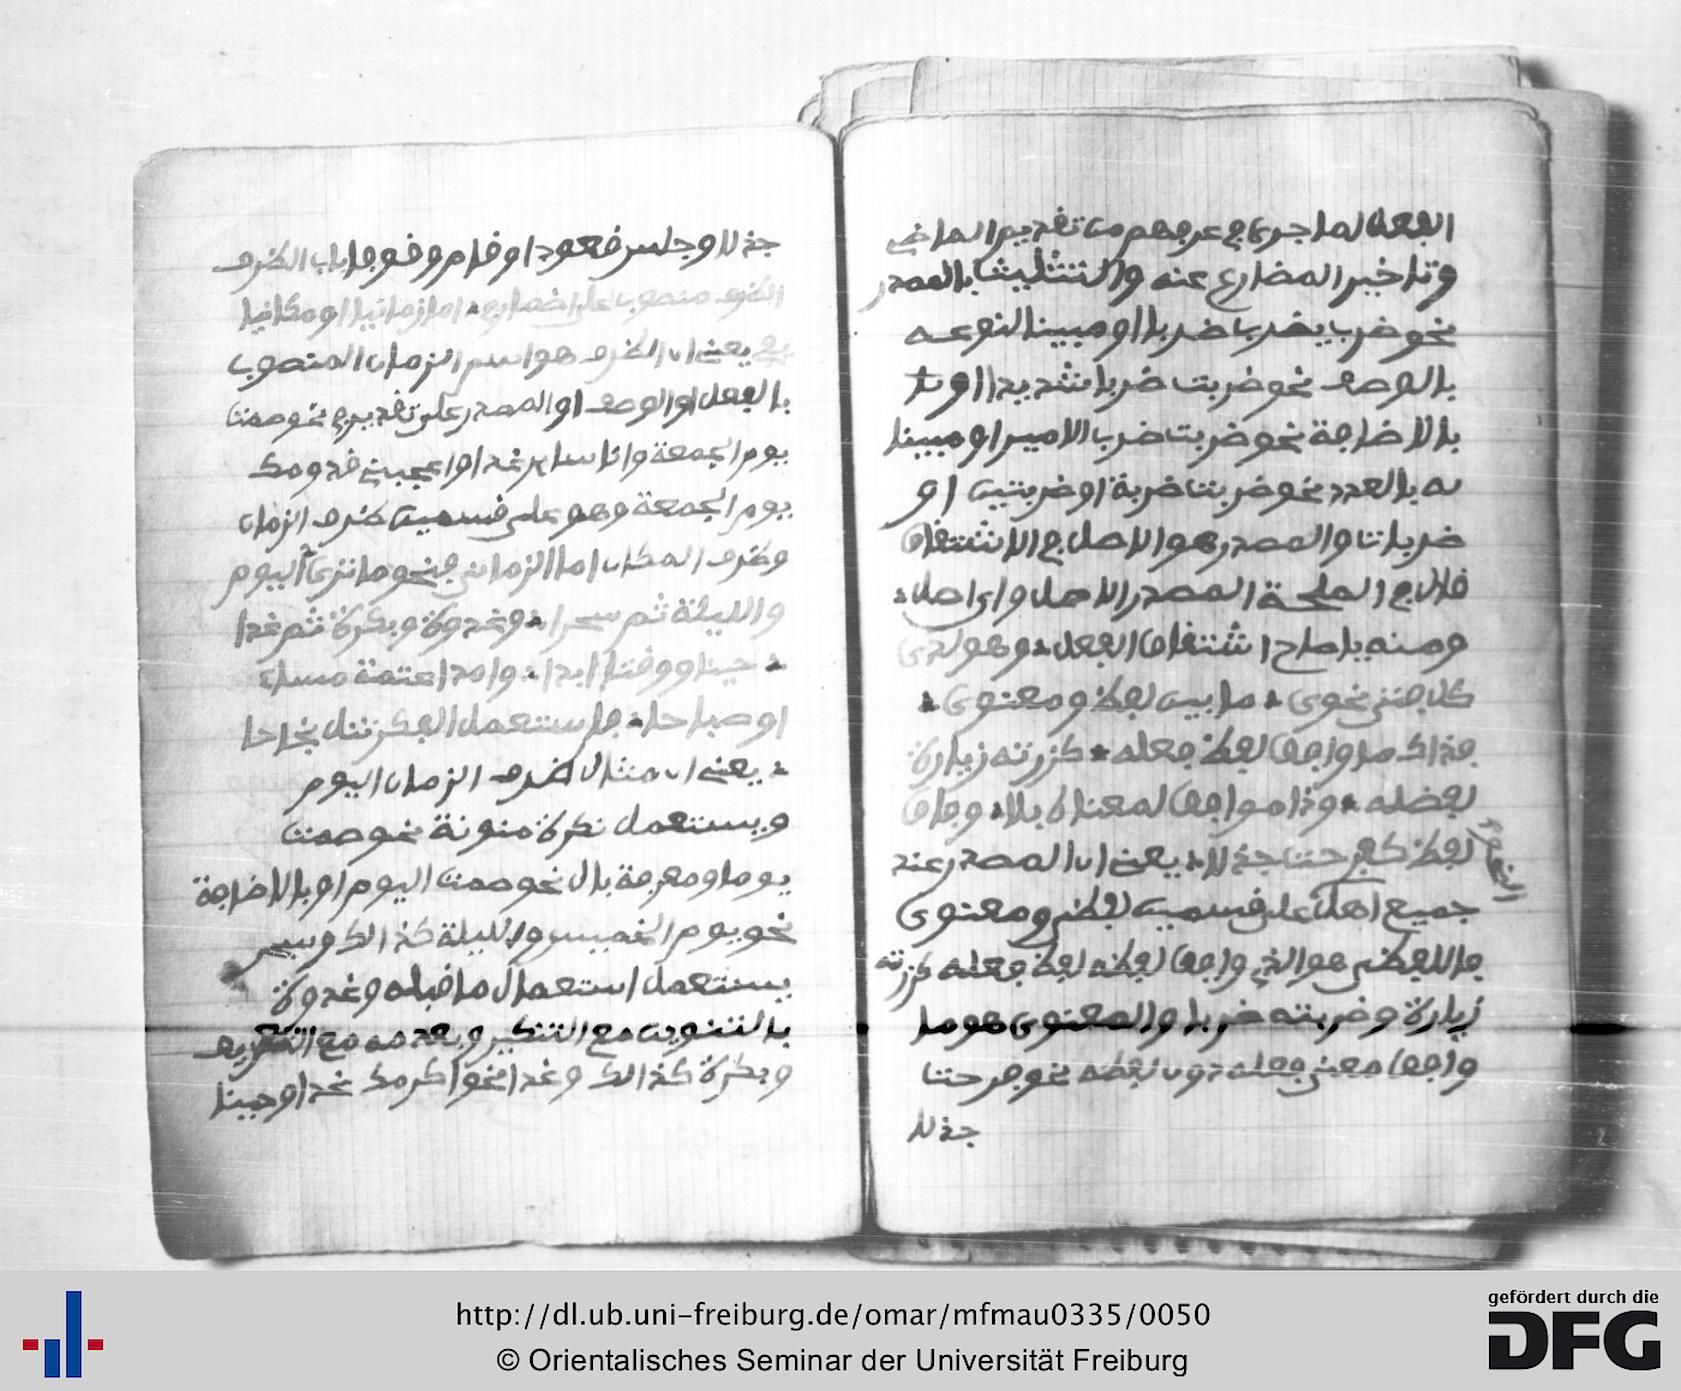 الفعل لما جرى في عرفهم من تقديم الماضي
وتاخير المضارع عنه والتثليث بالمصدر
نحو ضرب يضرب ضربا او مبينا لنوعه
بالوصف نحو ضربت ضربا شديدا او
بالاضافة نحو ضربت ضرب الامير او مبينا
له بالعدد نحو ضربت ضربة او ضربتين او
ضربات والمصدر هو الاصل في الاشتقاق
قال في الملحة المصدر الاصل واي اصل
ومنه يا صاح اشتقاق الفعل وهو لدى
كل فتى نحوى ما بين لفظي ومعنوى
فذاك ما وافق لفظ فعله كزرته زيارة
لفضله وذا موافق لمعناه بلا وفاق
لفظ كفرحت جذلا يعني ان المصدر عند
النحاة
جميع اهل على قسمين لفظي ومعنوى
فاللفظي هو الذي وافق لفظه لفظ فعله كزرته
زيارة وضربته ضربا والمعنوى هو ما
وافق معنى فعله دون لفظه نحو فرحت
جذلا
جذلا وجلس قعودا وقام وقوفا باب الظرف
الظرف منصوب على اضمار في اما زمانيا او مكانيا
يعني ان الظرف هو اسم الزمان المنصوب
بالفعل او الوصف او المصدر على تقدير في نحو صمت
يوم الجمعة وانا سائر غدا او اعجبني قدومك
يوم الجمعة وهو على قسمين ظرف الزمان
وظرف المكان اما الزماني فنحو ما ترى اليوم
والليلة ثم سحرا وغدوة وبكرة ثم غدا
حينا ووقتا ابدا وامدا عتمة مساء
او صباحا فاستعمل الفكر تنل نجاحا
يعني ان مثال ظرف الزمان اليوم
ويستعمل نكرة منونة نحو صمت
يوما ومعرفة بال نحو صمت اليوم او بالاضافة
نحو يوم الخميس والليلة كذالك وسحر
يستعمل استعمال ما قبله وغدوة
بالتنوين مع التنكير وبعدمه مع التعريف
وبكرة كذالك وغدا نحو اكرمك غدا وحينا
http://dl.ub.uni-freiburg.de/omar/mfmau0335/0050
© Orientalisches Seminar der Universität Freiburg
gefördert durch die
DFG